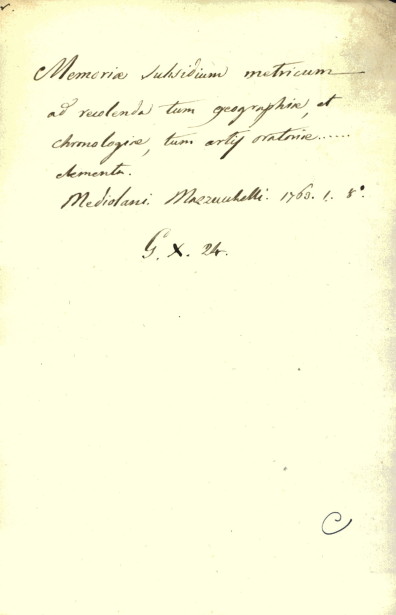 Memoriæ subsidium metricum
ad recolenda tum geographiæ, et
chronologiæ, tum artis oratoriæ......
elementa.
Mediolani. Mazzucchelli. 1763. 1. 8°
G. X. 24.
C